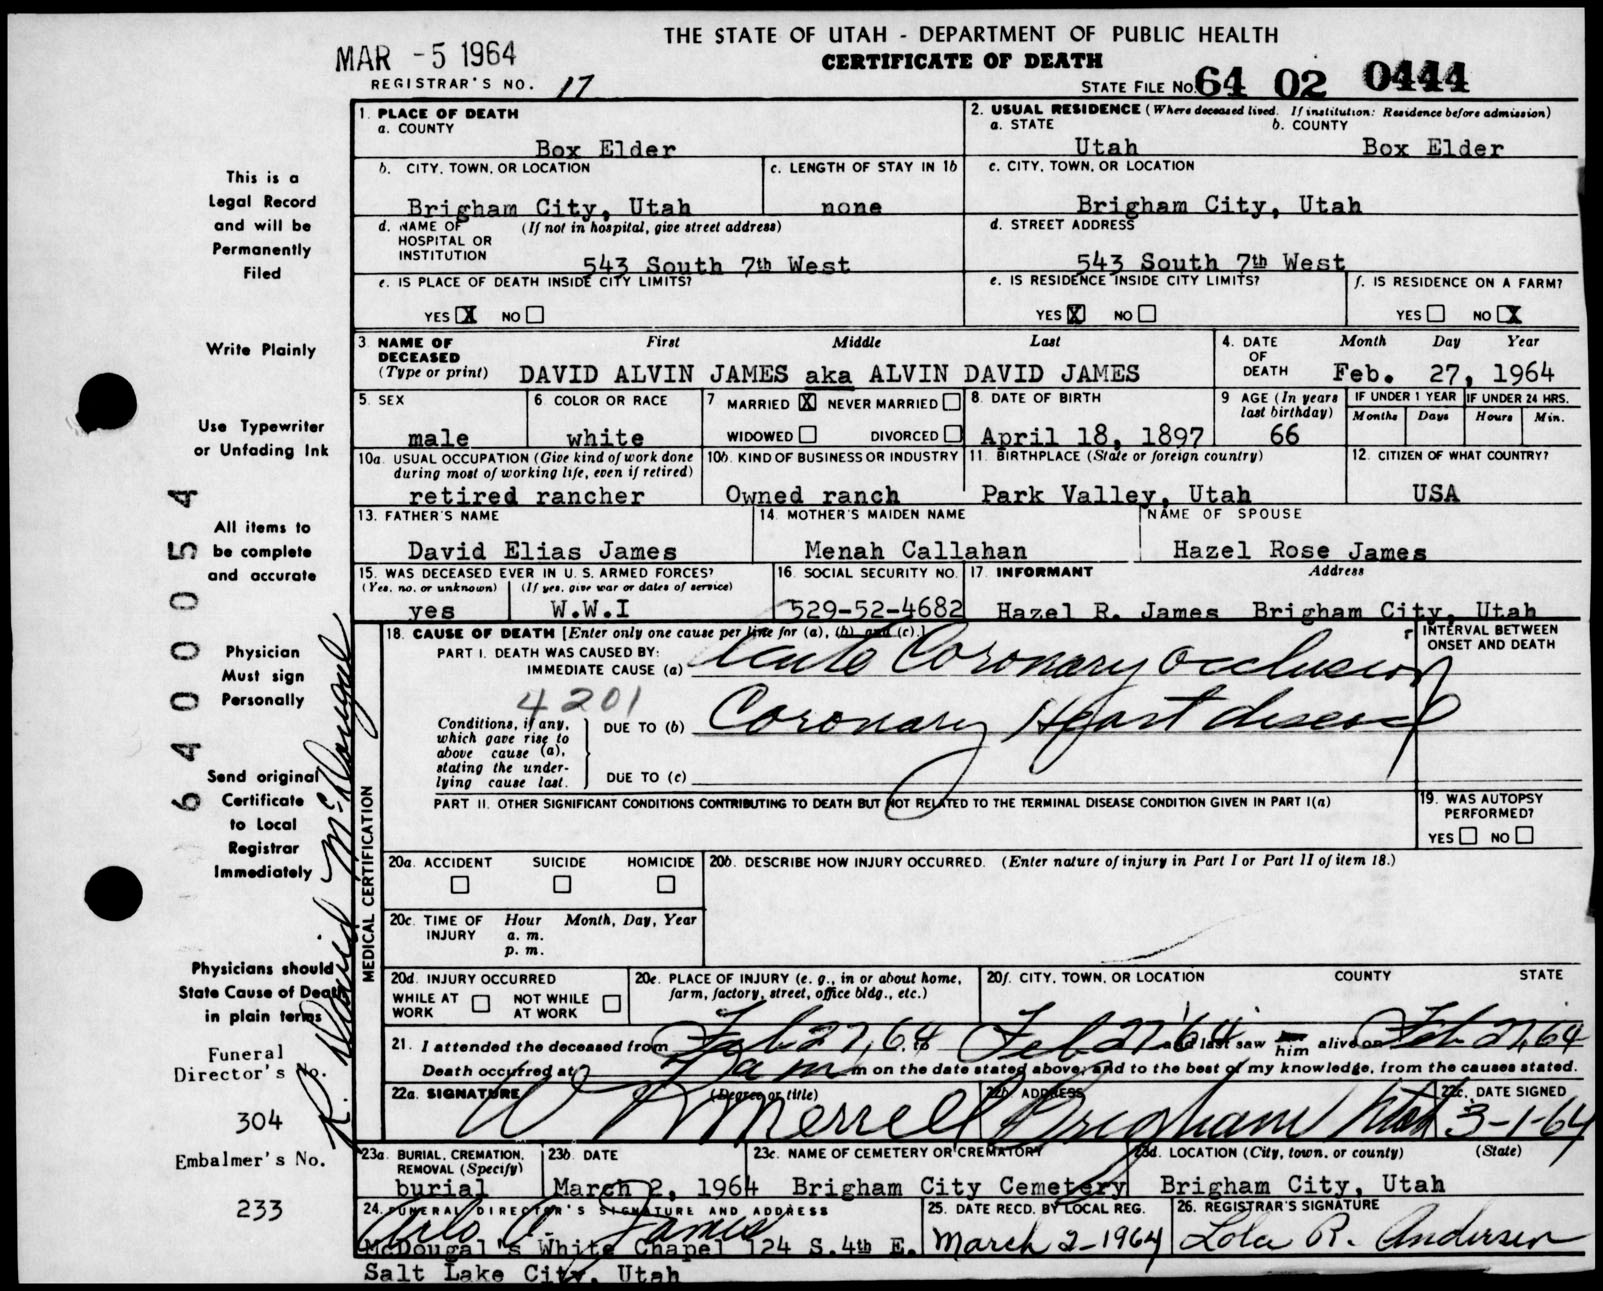 THE STATE OF UTAH - DEPARTMENT OF PUBLIC HEALTH
MAR -5 1964
CERTIFICATE OF DEATH
REGISTRAR'S NO. 17
STATE FILE NO. 64 02 0444
1. PLACE OF DEATH
a. COUNTY
Box Elder
2. USUAL RESIDENCE (Where deceased lived. If institution: Residence before admission)
a. STATE b. COUNTY
Utah Box Elder
b. CITY, TOWN, OR LOCATION
Brigham City, Utah
c. LENGTH OF STAY IN 1b
none
c. CITY, TOWN, OR LOCATION
Brigham City, Utah
d. NAME OF HOSPITAL OR INSTITUTION (If not in hospital, give street address)
543 South 7th West
d. STREET ADDRESS
543 South 7th West
e. IS PLACE OF DEATH INSIDE CITY LIMITS?
YES X NO
e. IS RESIDENCE INSIDE CITY LIMITS?
YES X NO
f. IS RESIDENCE ON A FARM?
YES NO X
3. NAME OF DECEASED (Type or print) First Middle Last
DAVID ALVIN JAMES aka ALVIN DAVID JAMES
4. DATE OF DEATH Month Day Year
Feb. 27, 1964
5. SEX
male
6 COLOR OR RACE
white
7 MARRIED X NEVER MARRIED
WIDOWED DIVORCED
8. DATE OF BIRTH
April 18, 1897
9 AGE (In years last birthday)
66
IF UNDER 1 YEAR IF UNDER 24 HRS.
Months Days Hours Min.
10a. USUAL OCCUPATION (Give kind of work done during most of working life, even if retired)
retired rancher
10b. KIND OF BUSINESS OR INDUSTRY
Owned ranch
11. BIRTHPLACE (State or foreign country)
Park Valley, Utah
12. CITIZEN OF WHAT COUNTRY?
USA
13. FATHER'S NAME
David Elias James
14. MOTHER'S MAIDEN NAME
Menah Callahan
NAME OF SPOUSE
Hazel Rose James
15. WAS DECEASED EVER IN U. S. ARMED FORCES?
(Yes, no, or unknown) (If yes, give war or dates of service)
yes W.W.I
16. SOCIAL SECURITY NO.
529-52-4682
17. INFORMANT Address
Hazel R. James Brigham City, Utah
MEDICAL CERTIFICATION
18. CAUSE OF DEATH [Enter only one cause per line for (a), (b) and (c).]
INTERVAL BETWEEN ONSET AND DEATH
PART I. DEATH WAS CAUSED BY:
IMMEDIATE CAUSE (a) Acute Coronary Occlusion
4201
Conditions, if any, which gave rise to above cause (a), stating the underlying cause last.
DUE TO (b) Coronary Heart disease
DUE TO (c)
PART II. OTHER SIGNIFICANT CONDITIONS CONTRIBUTING TO DEATH BUT NOT RELATED TO THE TERMINAL DISEASE CONDITION GIVEN IN PART I(a)
19. WAS AUTOPSY PERFORMED?
YES NO
20a. ACCIDENT SUICIDE HOMICIDE
20b. DESCRIBE HOW INJURY OCCURRED. (Enter nature of injury in Part I or Part II of item 18.)
20c. TIME OF INJURY Hour Month, Day, Year
a. m.
p. m.
20d. INJURY OCCURRED
WHILE AT WORK NOT WHILE AT WORK
20e. PLACE OF INJURY (e. g., in or about home, farm, factory, street, office bldg., etc.)
20f. CITY, TOWN, OR LOCATION COUNTY STATE
21. I attended the deceased from Feb 27, 64, to Feb 27 '64 and last saw him alive on Feb 27, 64
Death occurred at 7 am m on the date stated above; and to the best of my knowledge, from the causes stated.
22a. SIGNATURE (Degree or title)
W R Merrell
22b. ADDRESS
Brigham Utah
22c. DATE SIGNED
3-1-64
23a. BURIAL, CREMATION, REMOVAL (Specify)
burial
23b. DATE
March 2, 1964
23c. NAME OF CEMETERY OR CREMATORY
Brigham City Cemetery
23d. LOCATION (City, town, or county) (State)
Brigham City, Utah
24. FUNERAL DIRECTOR'S SIGNATURE AND ADDRESS
McDougal's White Chapel 124 S.4th E.
Salt Lake City, Utah
25. DATE RECD. BY LOCAL REG.
March 2-1964
26. REGISTRAR'S SIGNATURE
Lola R. Andersen
This is a
Legal Record
and will be
Permanently
Filed
Write Plainly
Use Typewriter
or Unfading Ink
All items to
be complete
and accurate
Physician
Must sign
Personally
Send original
Certificate
to Local
Registrar
Immediately
Physicians should
State Cause of Death
in plain terms
Funeral
Director's No.
304
Embalmer's No.
233
6400054
R. David McDougal